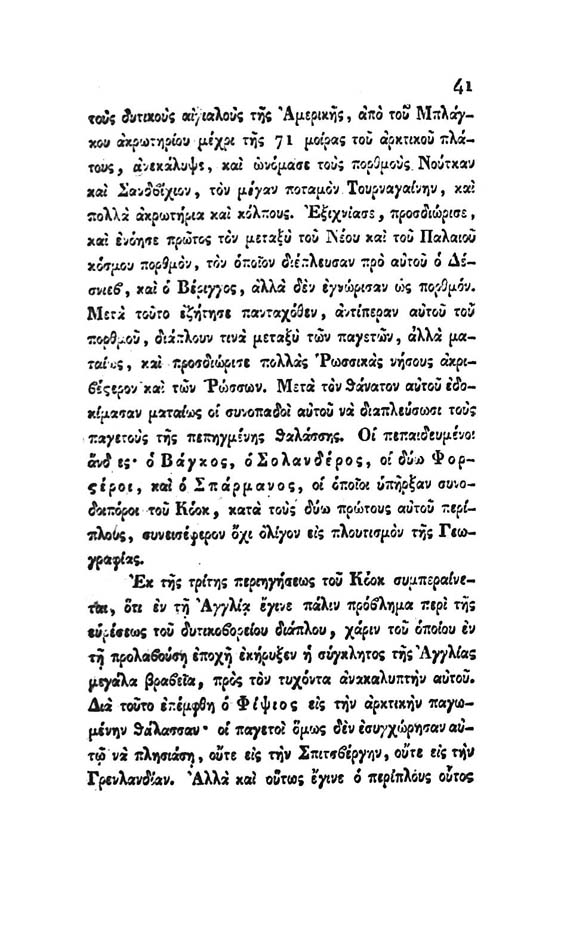 41
τοὺς δυτικοὺς αἰγιαλοὺς τῆς Ἀμερικῆς, ἀπὸ τοῦ Μπλάγ-
κου ἀκρωτηρίου μέχρι τῆς 71 μοίρας τοῦ ἀρκτικοῦ πλά-
τους, ἀνεκάλυψε, καὶ ὠνόμασε τοὺς πορθμοὺς Νούτκαν
καὶ Σανδβίχιον, τὸν μέγαν ποταμὸν Τουρναγαίνην, καὶ
πολλὰ ἀκρωτήρια καὶ κόλπους. Ἐξιχνίασε, προσδιώρισε,
καὶ ἐνόησε πρῶτος τὸν μεταξὺ τοῦ Νέου καὶ τοῦ Παλαιοῦ
κόσμου πορθμὸν, τὸν ὁποῖον διέπλευσαν πρὸ αὐτοῦ ὁ Δέ-
σνιεβ, καὶ ὁ Βέριγγος, ἀλλὰ δὲν ἐγνώρισαν ὡς πορθμόν.
Μετὰ τοῦτο ἐζήτησε πανταχόθεν, ἀντίπεραν αὐτοῦ τοῦ
πορθμοῦ, διάπλουν τινὰ μεταξὺ τῶν παγετῶν, ἀλλὰ μα-
ταίως, καὶ προσδιώρισε πολλὰς Ῥωσσικὰς νήσους ἀκρι-
βέϛερον καὶ τῶν Ῥώσσων. Μετὰ τὸν θάνατον αὐτοῦ ἐδο-
κίμασαν ματαίως οἱ συνοπαδοὶ αὐτοῦ νὰ διαπλεύσωσι τοὺς
παγετοὺς τῆς πεπηγμένης θαλάσσης. Οἱ πεπαιδευμένοι
ἄνδρες· ὁ Βάγκος, ὁ Σολανδέρος, οἱ δύω Φορ-
ϛέροι, καὶ ὁ Σπάρμανος, οἱ ὁποῖοι ὑπῆρξαν συνο-
δοιπόροι τοῦ Κόοκ, κατὰ τοὺς δύω πρώτους αὐτοῦ περί-
πλους, συνεισέφερον ὄχι ὀλίγον εἰς πλουτισμὸν τῆς Γεω-
γραφίας.
Ἐκ τῆς τρίτης περιηγήσεως τοῦ Κόοκ συμπεραίνε-
ται, ὅτι ἐν τῇ Ἀγγλίᾳ ἔγινε πάλιν πρόβλημα περὶ τῆς
εὑρέσεως τοῦ δυτικοβορείου διάπλου, χάριν τοῦ ὁποίου ἐν
τῇ προλαβούσῃ ἐποχῇ ἐκήρυξεν ἡ σύγκλητος τῆς Ἀγγλίας
μεγάλα βραβεῖα, πρὸς τὸν τυχόντα ἀνακαλυπτὴν αὐτοῦ.
Διὰ τοῦτο ἐπέμφθη ὁ Φίψιος εἰς τὴν ἀρκτικὴν παγω-
μένην θάλασσαν· οἱ παγετοὶ ὅμως δὲν ἐσυγχώρησαν αὐ-
τῷ νὰ πλησιάσῃ, οὔτε εἰς τὴν Σπιτσβέργην, οὔτε εἰς τὴν
Γρενλανδίαν. Ἀλλὰ καὶ οὕτως ἔγινε ὁ περίπλους οὗτος